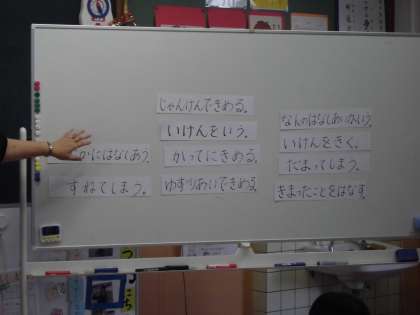 じゃんけんできめる。
いけんをいう。
かってにきめる。
ゆずりあいできめる。
かにはなしあう。
すねてしまう。
なんのはなしあいかいう。
いけんをきく。
だまってしまう。
きまったことをはなす。